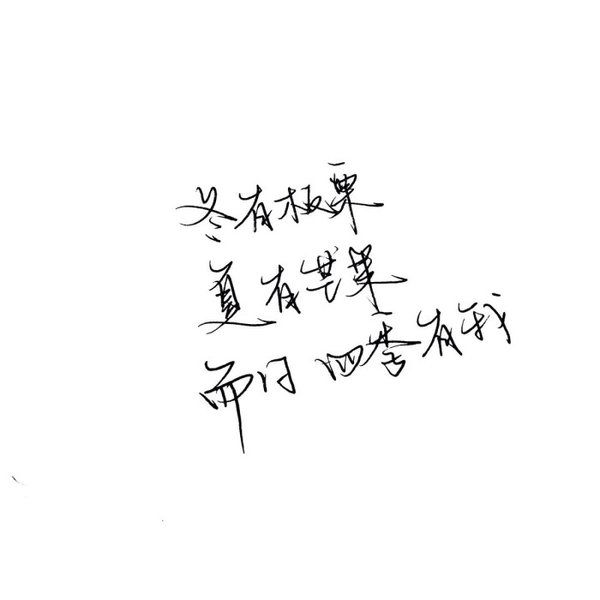 冬有板栗
夏有芒果
而 四季有我